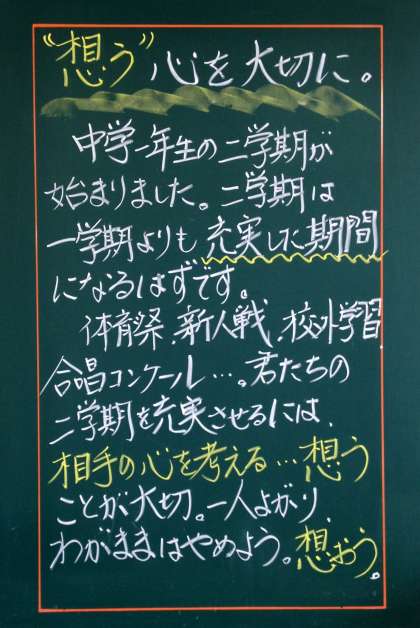 “想う”心を大切に。
中学一年生の二学期が
始まりました。二学期は
一学期よりも充実した期間
になるはずです。
体育祭、新人戦、校外学習
合唱コンクール…。君たちの
二学期を充実させるには、
相手の心を考える…想う
ことが大切。一人よがり、
わがままはやめよう。想おう。